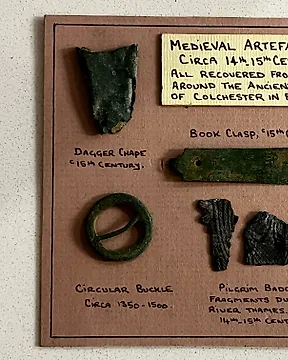 MEDIEVAL ARTEFA
CIRCA 14TH, 15TH CE
ALL RECOVERED FRO
AROUND THE ANCIEN
OF COLCHESTER IN E
BOOK CLASP, C15TH C
DAGGER CHAPE
C15TH CENTURY.
CIRCULAR BUCKLE
CIRCA 1350-1500.
PILGRIM BADG
FRAGMENTS DU
RIVER THAMES.
14TH-15TH CENT